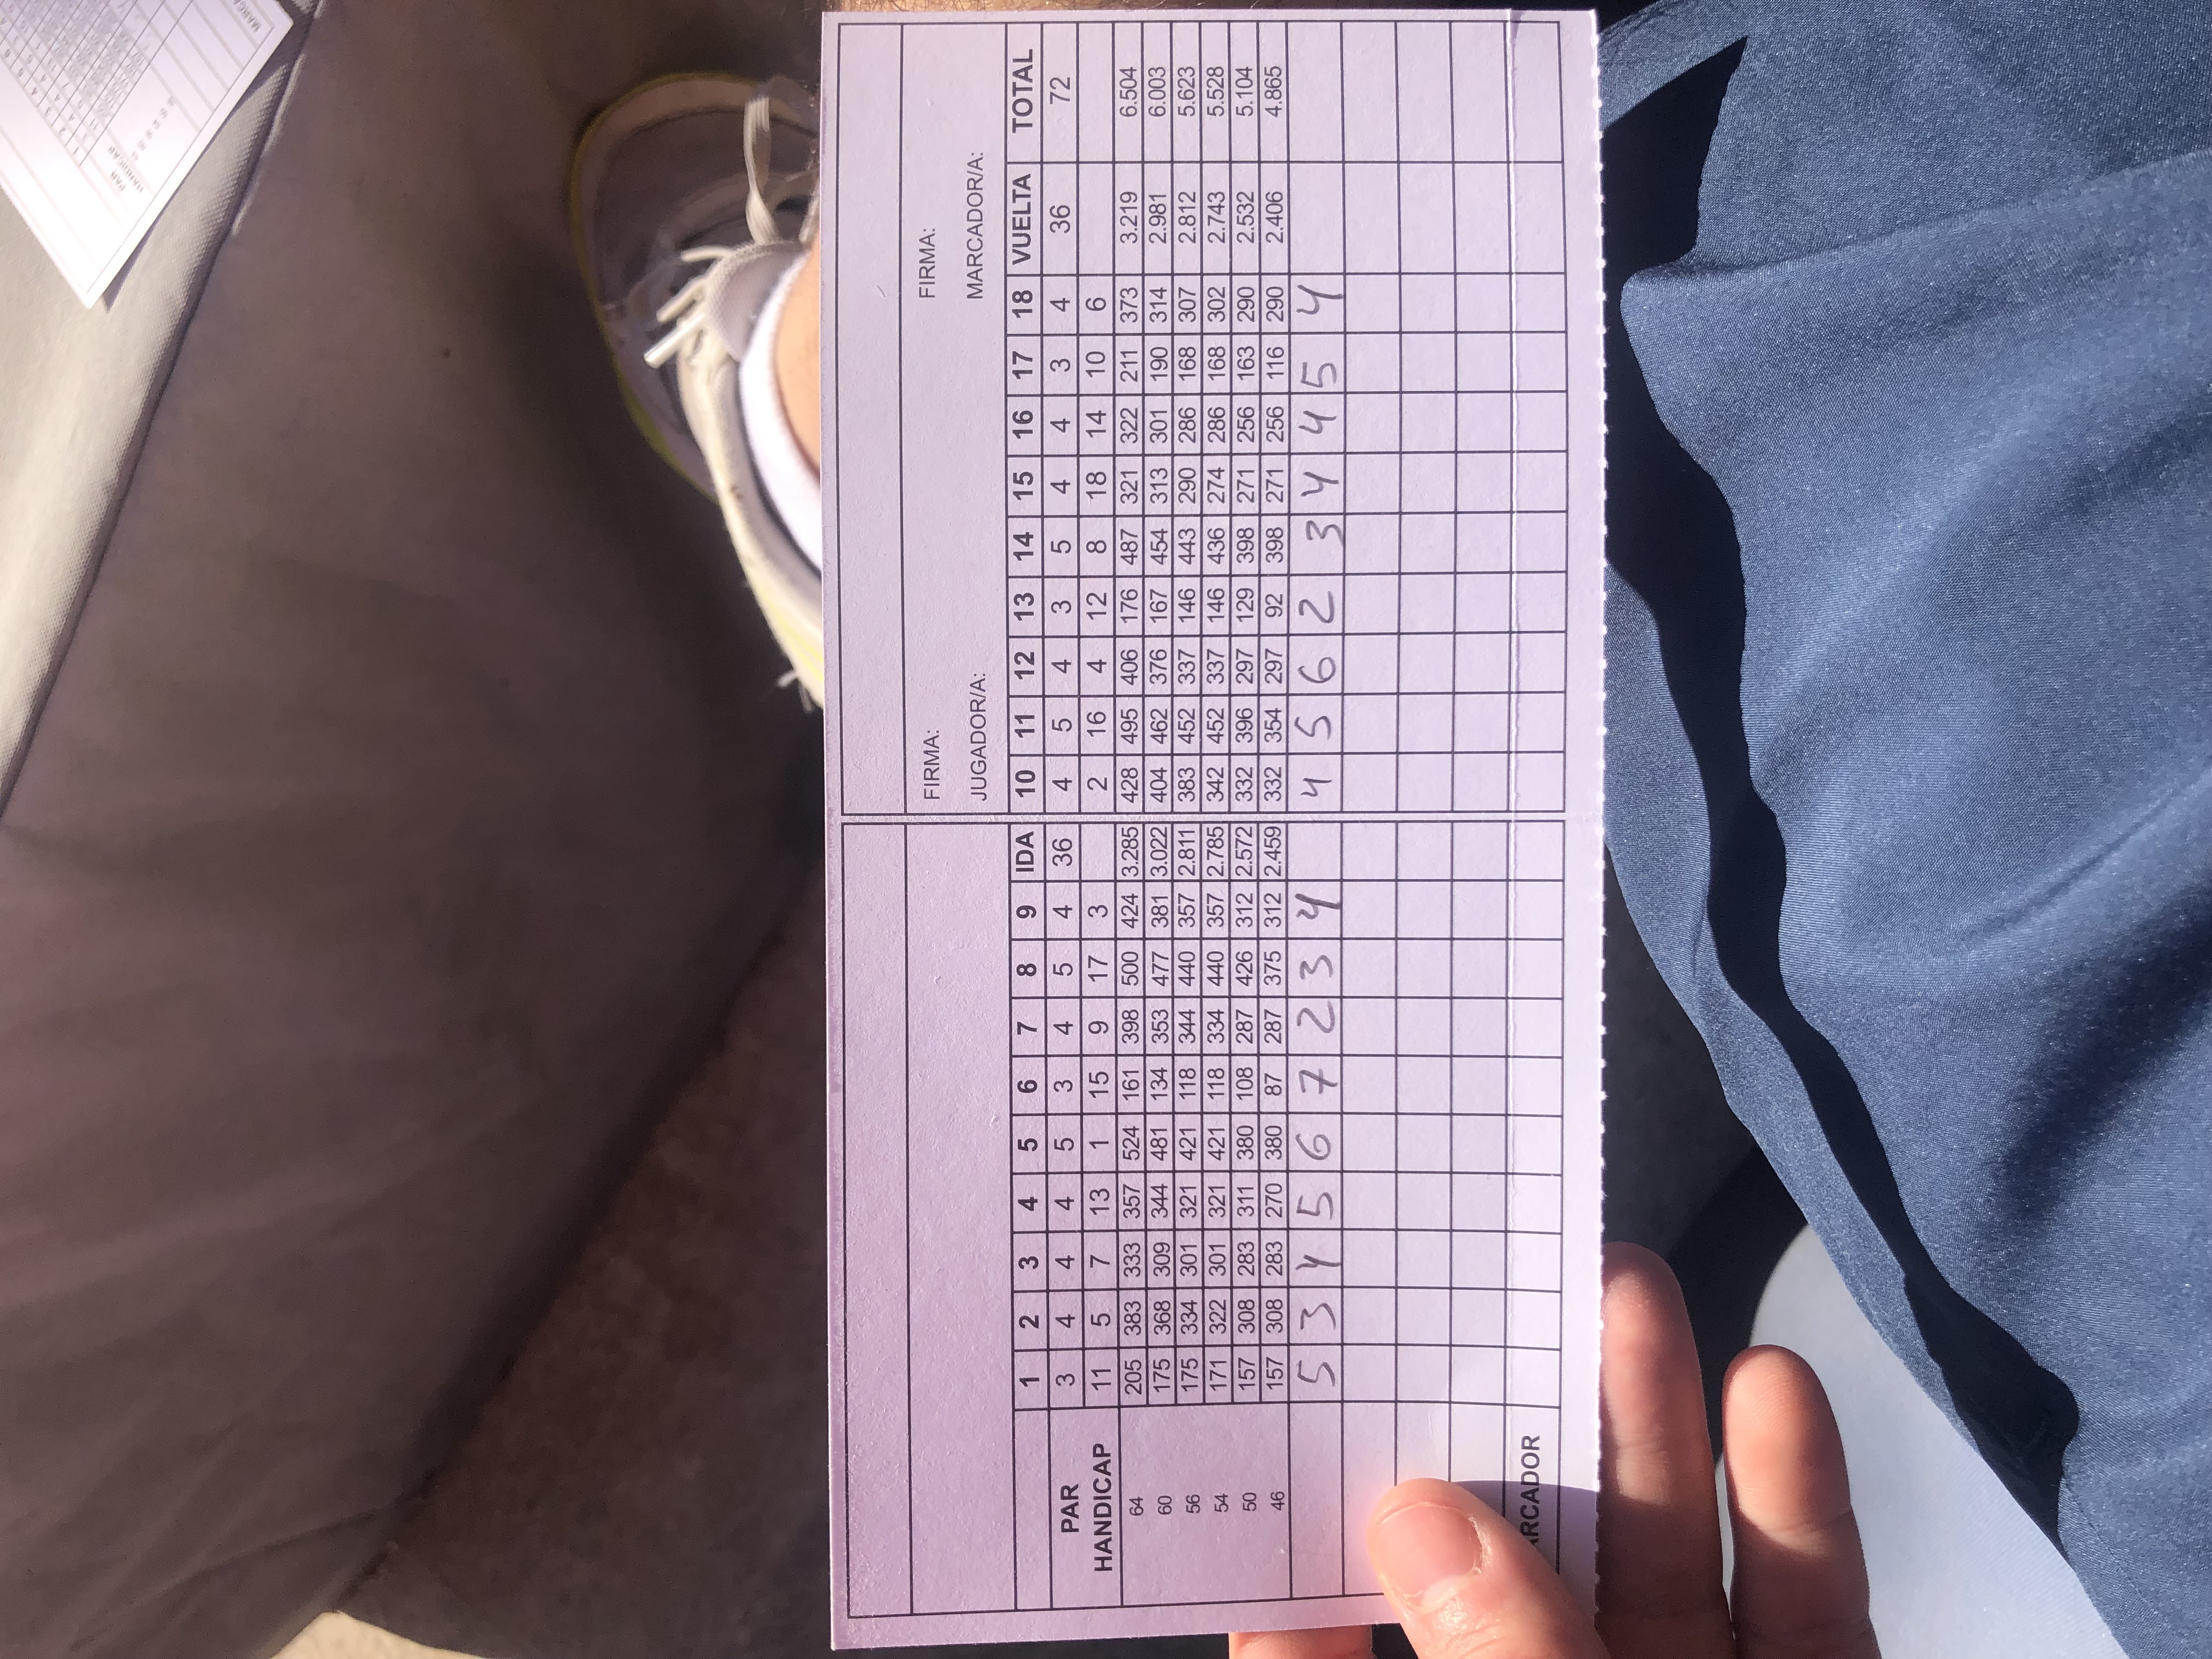 FIRMA: FIRMA:
JUGADOR/A: MARCADOR/A:
1 2 3 4 5 6 7 8 9 IDA 10 11 12 13 14 15 16 17 18 VUELTA TOTAL
PAR 3 4 4 4 5 3 4 5 4 36 4 5 4 3 5 4 4 3 4 36 72
HANDICAP 11 5 7 13 1 15 9 17 3 2 16 4 12 8 18 14 10 6
64 205 383 333 357 524 161 398 500 424 3.285 428 495 406 176 487 321 322 211 373 3.219 6.504
60 175 368 309 344 481 134 353 477 381 3.022 404 462 376 167 454 313 301 190 314 2.981 6.003
56 175 334 301 321 421 118 344 440 357 2.811 383 452 337 146 443 290 286 168 307 2.812 5.623
54 171 322 301 321 421 118 334 440 357 2.785 342 452 337 146 436 274 286 168 302 2.743 5.528
50 157 308 283 311 380 108 287 426 312 2.572 332 396 297 129 398 271 256 163 290 2.532 5.104
46 157 308 283 270 380 87 287 375 312 2.459 332 354 297 92 398 271 256 116 290 2.406 4.865
5 3 4 5 6 7 2 3 4 4 5 6 2 3 4 4 5 4
RCADOR
PAR
HANDICAP